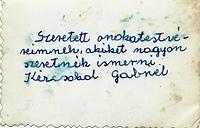 Szeretett onokatestvé-
reimnek, akiket nagyon
szeretnék ismerni.
Kércsokol Gabnél